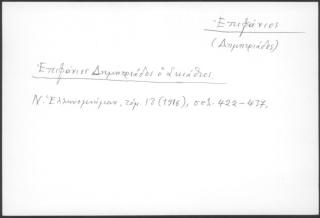 Ἐπιφάνιος
(Δημητριάδος)
Ἐπιφάνιος Δημητριάδος ὁ Σκιάθιος.
Ν. Ἑλληνομνήμων, τόμ. 13 (1916), σελ. 422-437.